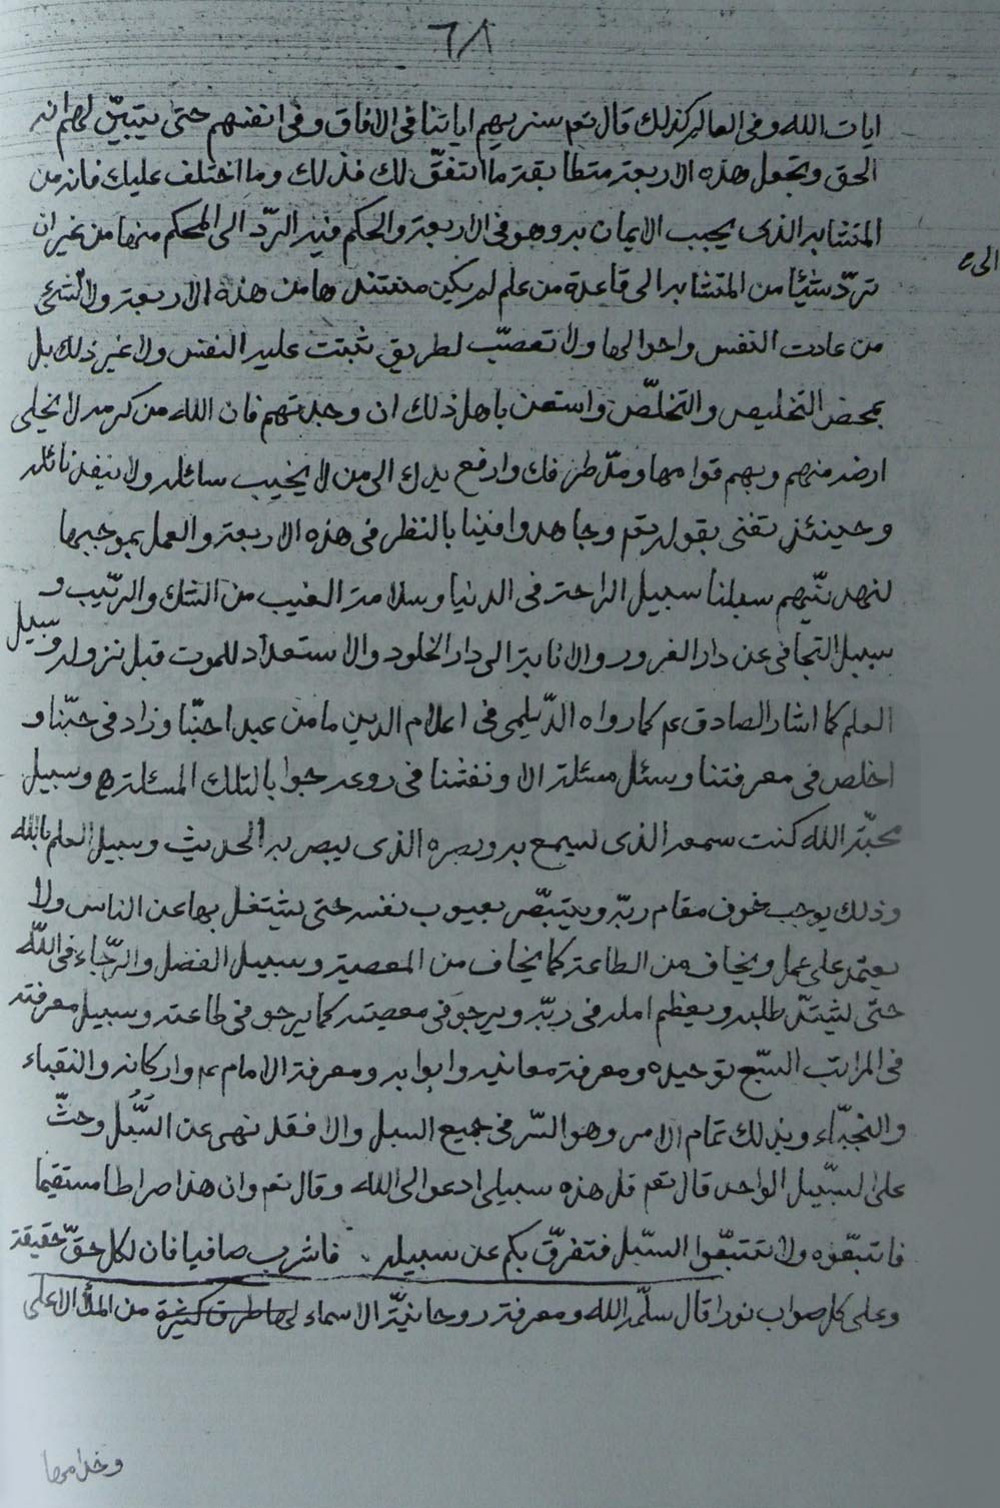 ٦٨
ايات الله وفى العالم كذلك قال تعم سنريهم اياتنا فى الافاق وفى انفسهم حتى يتبيّن لهم انه
الحق وتجعل هذه الاربعة متطابقة ما اتفق لك فذلك وما اختلف عليك فانه من
المتشابه الذى يجب الايمان به وهو فى الاربعة والحكم فيه الردّ الى المحكم منها من غير ان
الى
تردّ شيئا من المتشابه الى قاعدة من علم لم يكن مستند ها من هذه الاربعة ولا لشئ
من عادت النفس واحوالها ولا تعصّب لطريق ثبتت عليه النفس ولا غير ذلك بل
بمحض التخليص والتخلّص واستعن باهل ذلك ان وجدتهم فان الله من كرمه لا يخلى
ارضه منهم وبهم قوامها ومدّ طرفك وارفع يدك الى من لا يخيب سائله ولا ينفد نائله
وحينئذ تفنى بقوله تعم وجاهدوا فينا بالنظر فى هذه الاربعة والعمل بموجبها
لنهدينّهم سبلنا سبيل الراحة فى الدنيا وسلامة الغيب من الشك والريب و
سبيل التجافى عن دار الغرور والانابة الى دار الخلود والاستعداد للموت قبل نزوله وسبيل
العلم كما اشار الصادق عم كما رواه الدّيلمى فى اعلام الدين ما من عبد احبّنا وزاد فى حبّنا و
اخلص فى معرفتنا وسئل مسئلة الا ونفثنا فى روعه جوابا لتلك المسئلة وسبيل
محبّة الله كنت سمعه الذى يسمع به وبصره الذى يبصر به الحديث وسبيل العلم بالله
وذلك يوجب خوف مقام ربّه ويتبصّر بعيوب نفسه حتى يشتغل بها عن الناس ولا
يعتمد على عمل ويخاف من الطاعة كما يخاف من المعصية وسبيل الفضل والرّجاء فى الله
حتى يشتدّ طلبه ويعظم امله فى ربّه ويرجو فى معصيته كما يرجو فى طاعته وسبيل معرفته
فى المراتب السّبع توحيده ومعرفة معانيه وابوابه ومعرفة الامام عم واركانه والنقباء
والنجبّاء وبذلك تمام الامر وهو السّر فى جميع السبل والا فقد نهى عن السُّبُل وحثّ
على السّبيل الواحد قال تعم قل هذه سبيلى ادعو الى الله وقال تعم وان هذا صراطا مستقيما
فاتبعوه ولا تتبعوا السّبل فتفرّق بكم عن سبيله فاشرب صافيا فان لكل حقّ حقيقة
وعلى كل صواب نورا قال سلّمه الله ومعرفة روحانيّة الاسماء لها طرق كثيرة من الملأ الاعلى
وخدامها